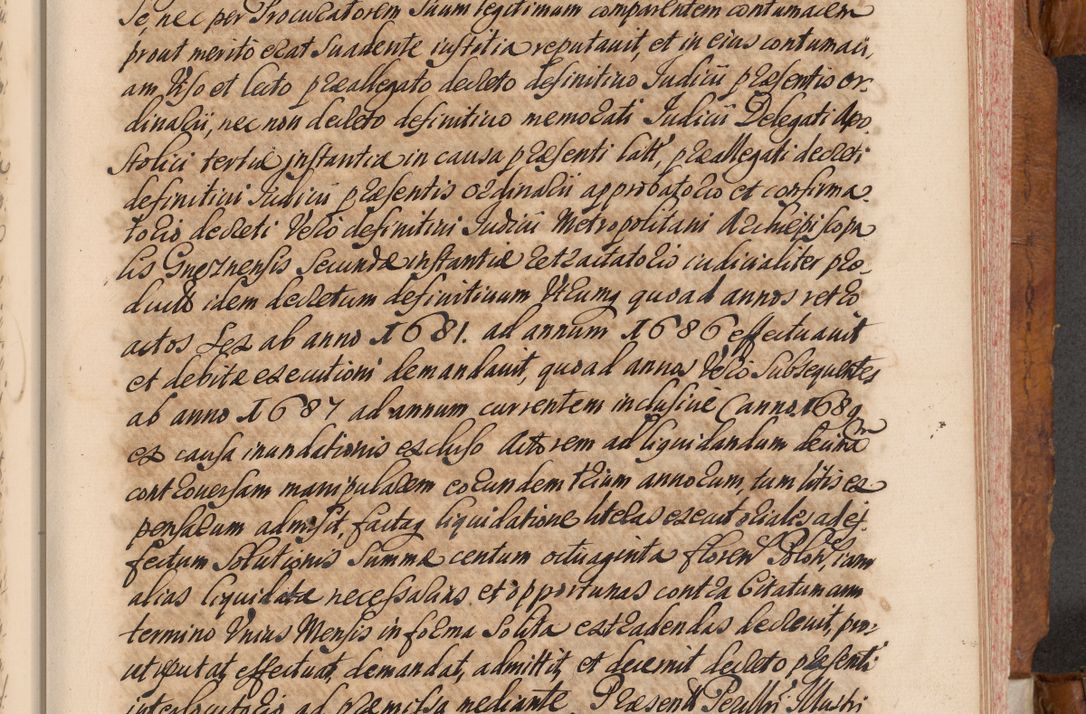 se, nec per Procuratorem suum legitimum comparentem contumacem
prout merito erat suadente iustitia reputauit, et in eius contumaci,
am Viso et lecto præallegato decreto definitiuo Judicii præsentis or,
dinarii, nec non decreto definitiuo memorati Judicii Delegati Apo,
stolici tertiæ instantiæ in causa præsenti latt, præallegati decreti
definitiui Judicii præsentis ordinarii approbatorio et confirma,
torio decreti Vero definitiui Judicii Metropolitani Archiepiscopa
lis Gneznensis secundæ instantiæ retractatorio iudicialiter pro,
ducto idem decretum definitiuum Vtrumq quoad annos retro
actos sex ab anno 1681. ad annum 1686 effectuauit
et debitæ executioni demandauit, quoad annos Vero subsequentes
ab anno 1687 ad annum currentem inclusiue (anno 1689
ex causa inundationis excluso Actorem ad liquidandum decimā
controuersam manipularem eorundem trium annorum, tum litis ex
pensarum admisit, factaq liquidatione literas executoriales ad ef,
fectum solutionis summæ centum octuaginta floren Polon, iam
alias liquidatæ necessarias et opportunas contra Citatum cum
termino Vnius Mensis in forma solita extradendas decreuit, pro,
ut reputat, effectuat, demandat, admittit, et decernit decreto præsenti
interlocutorio ad præmissa mediante Præsent Perillri Illustri